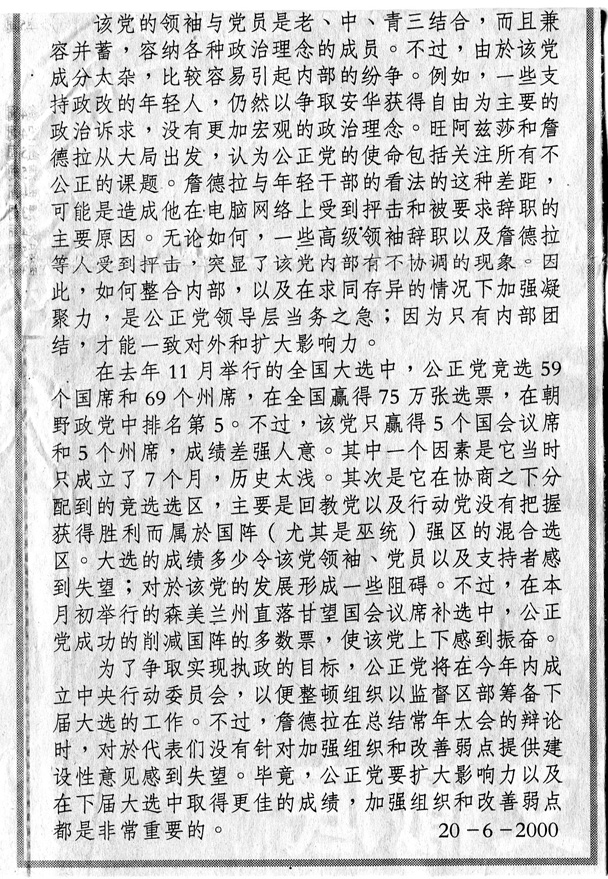 该党的领袖与党员是老、中、青三结合，而且兼
容并蓄，容纳各种政治理念的成员。不过，由於该党
成分太杂，比较容易引起内部的纷争。例如，一些支
持政改的年轻人，仍然以争取安华获得自由为主要的
政治诉求，没有更加宏观的政治理念。旺阿兹莎和詹
德拉从大局出发，认为公正党的使命包括关注所有不
公正的课题。詹德拉与年轻干部的看法的这种差距，
可能是造成他在电脑网络上受到抨击和被要求辞职的
主要原因。无论如何，一些高级领袖辞职以及詹德拉
等人受到抨击，突显了该党内部有不协调的现象。因
此，如何整合内部，以及在求同存异的情况下加强凝
聚力，是公正党领导层当务之急；因为只有内部团
结，才能一致对外和扩大影响力。
在去年11月举行的全国大选中，公正党竞选59
个国席和69个州席，在全国赢得75万张选票，在朝
野政党中排名第5。不过，该党只赢得5个国会议席
和5个州席，成绩差强人意。其中一个因素是它当时
只成立了7个月，历史太浅。其次是它在协商之下分
配到的竞选选区，主要是回教党以及行动党没有把握
获得胜利而属於国阵（尤其是巫统）强区的混合选
区。大选的成绩多少令该党领袖、党员以及支持者感
到失望；对於该党的发展形成一些阻碍。不过，在本
月初举行的森美兰州直落甘望国会议席补选中，公正
党成功的削减国阵的多数票，使该党上下感到振奋。
为了争取实现执政的目标，公正党将在今年内成
立中央行动委员会，以便整顿组织以监督区部筹备下
届大选的工作。不过，詹德拉在总结常年大会的辩论
时，对於代表们没有针对加强组织和改善弱点提供建
设性意见感到失望。毕竟，公正党要扩大影响力以及
在下届大选中取得更佳的成绩，加强组织和改善弱点
都是非常重要的。 20－6－2000